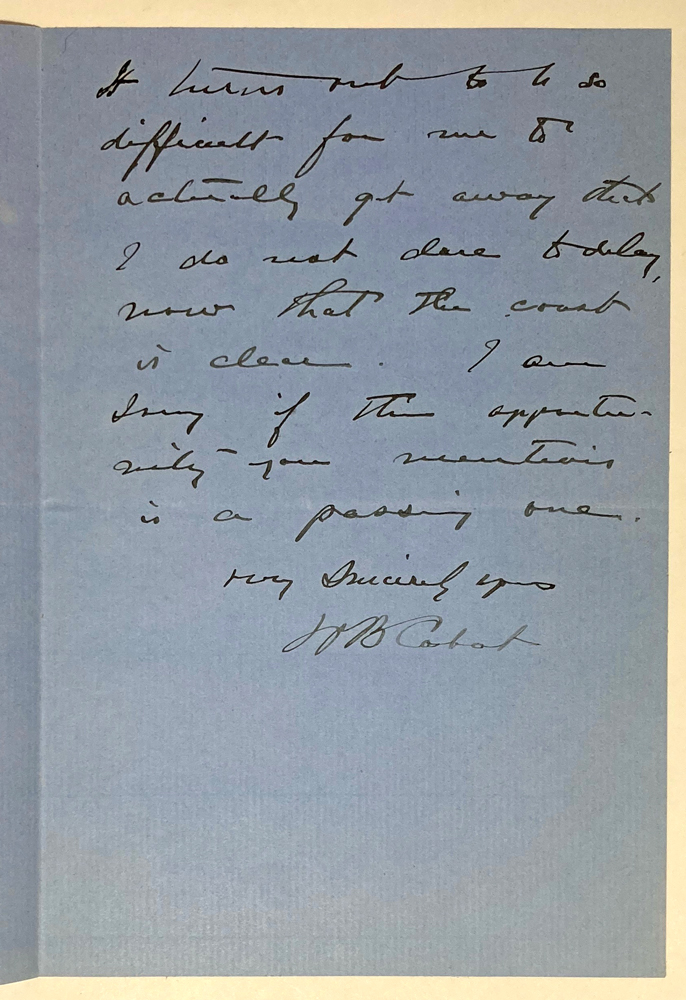 It turns out to be so
difficult for me to
actually get away that
I do not dare to delay,
now that the coast
is clear. I am
sorry if the opportu-
nity you mention
is a passing one.
Very sincerely yours
W B Cabot